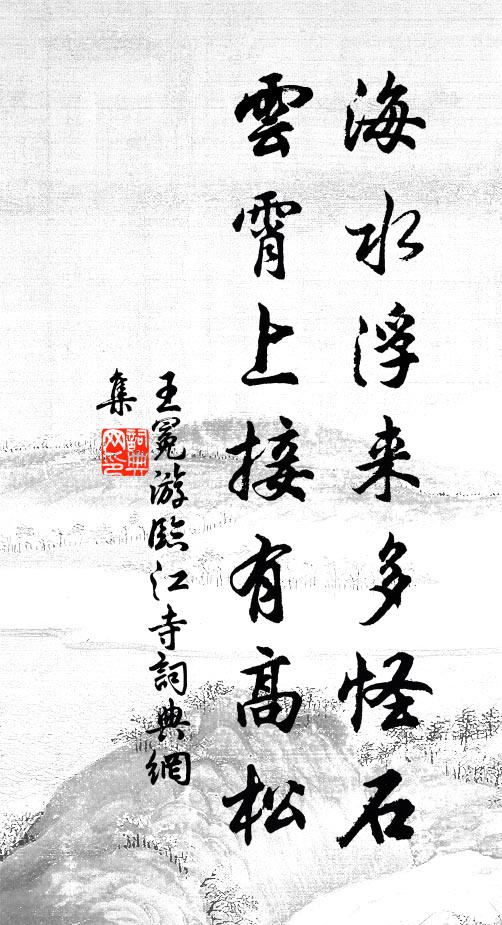 海水浮来多怪石
雲霄上接有高松
王冕游臨江寺詞典網
集
詞典网印